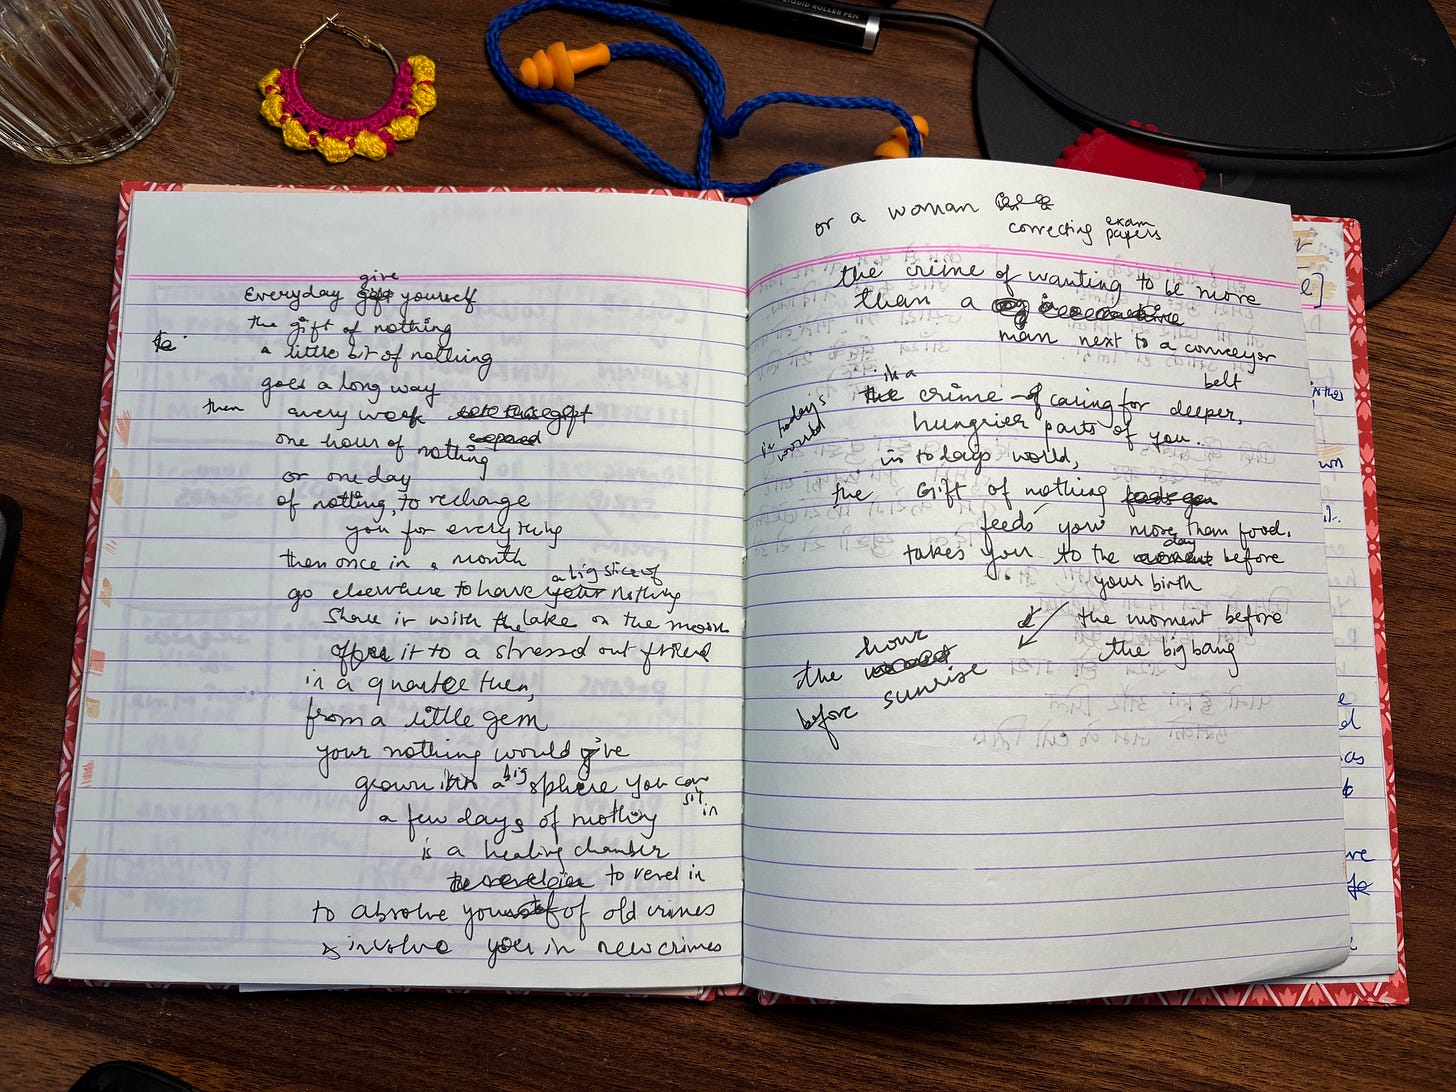 LIQUID ROLLER PEN
give
Everyday gift yourself
the gift of nothing
a little bit of nothing
goes a long way
then every week
one hour of nothing
or one day
of nothing, to recharge
you for everything
then once in a month
a big slice of
go elsewhere to have your nothing
share it with the lake or the moon
offer it to a stressed out friend
in a quarter then,
from a little gem
your nothing would give
grown into a big sphere you can
sit in
a few days of nothing
is a healing chamber
to revel in
to absolve yourself of old crimes
& involve you in new crimes
or a woman
correcting exam papers
the crime of wanting to be more
than a
man next to a conveyor
belt
is a
in today's world
the crime of caring for deeper,
hungrier parts of you.
in todays world,
the Gift of nothing
feeds you more than food.
day
takes you to the moment before
your birth
the moment before
the big bang
the hour
before sunrise